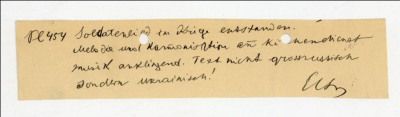 PK 454 Soldatenlied im Kriege entstanden.
Melodie und Harmonisation an Kirchendienst
musik anklingend. Text nicht grossrussisch
sondern ukrainisch!